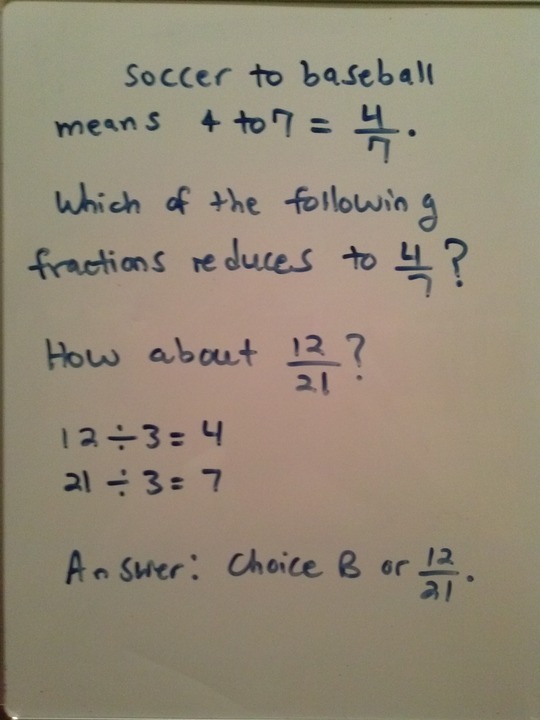 soccer to baseball
means 4 to 7 = 4/7.
Which of the following
fractions reduces to 4/7?
How about 12/21?
12 ÷ 3 = 4
21 ÷ 3 = 7
Answer: Choice B or 12/21.